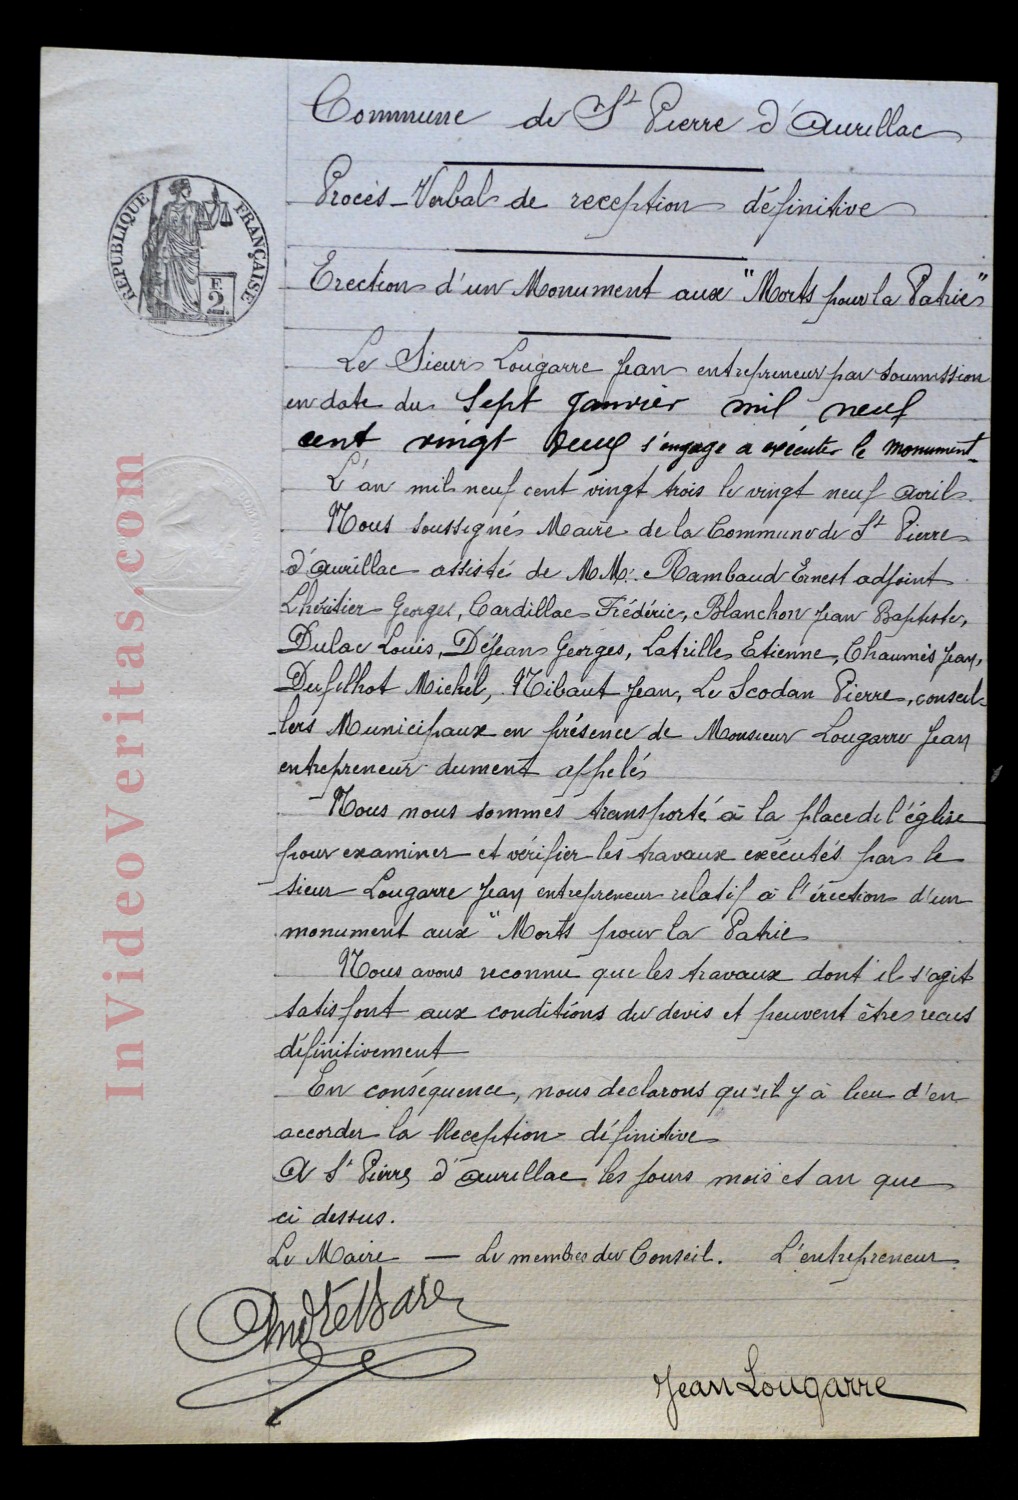 Commune de St Pierre d'Aurillac
Procès-Verbal de reception définitive
Erection d'un Monument aux "Morts pour la Patrie"
RÉPUBLIQUE FRANÇAISE
F
2
Le Sieur Lougarre Jean entrepreneur par soumission
en date du Sept Janvier mil neuf
cent vingt deux s'engage a exécuter le monument
L'an mil neuf cent vingt trois le vingt neuf Avril
Nous soussignés Maire de la Commune de St Pierre
d'Aurillac assisté de MM. Rambaud Ernest adjoint
Lhéritier Georges, Cardillac Frédéric, Blanchon Jean Baptiste,
Dulac Louis, Déjean Georges, Latrille Etienne, Chaumès Jean,
Dufilhot Michel, Nibaut Jean, Le Scodan Pierre, conseil-
-lers Municipaux en présence de Monsieur Lougarre Jean
entrepreneur dument appelés
Nous nous sommes transporté à la place de l'église
pour examiner et vérifier les travaux exécutés par le
sieur Lougarre Jean entrepreneur relatif à l'érection d'un
monument aux "Morts pour la Patrie
Nous avons reconnu que les travaux dont il s'agit
satisfont aux conditions du devis et peuvent êtres recus
définitivement
En conséquence, nous declarons qu'il y à lieu d'en
accorder la Reception définitive
A St Pierre d'Aurillac les jours mois et an que
ci dessus.
Le Maire — Le membres du Conseil. L'entrepreneur
Jean Lougarre
InVideoVeritas.com